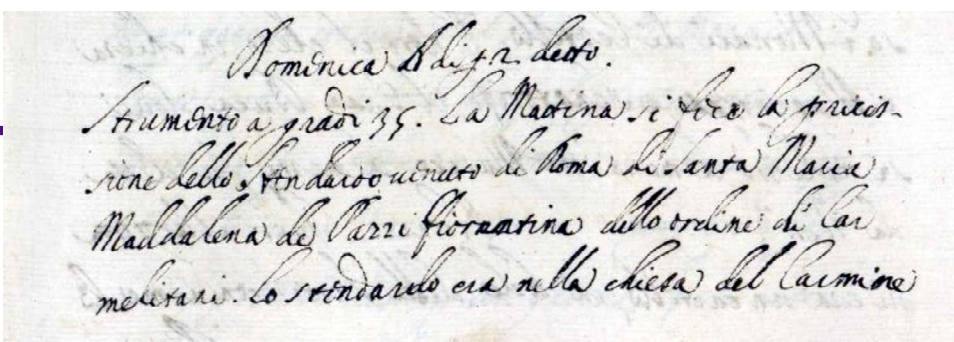 Domenica A di 12 detto.
Strumento a gradi 35. La Mattina si fece la procis-
sione dello Stendardo venuto di Roma di Santa Maria
Maddalena de Pazzi fiorentina dello ordine di Car
melitani. lo stendardo era nella chiesa del Carmine